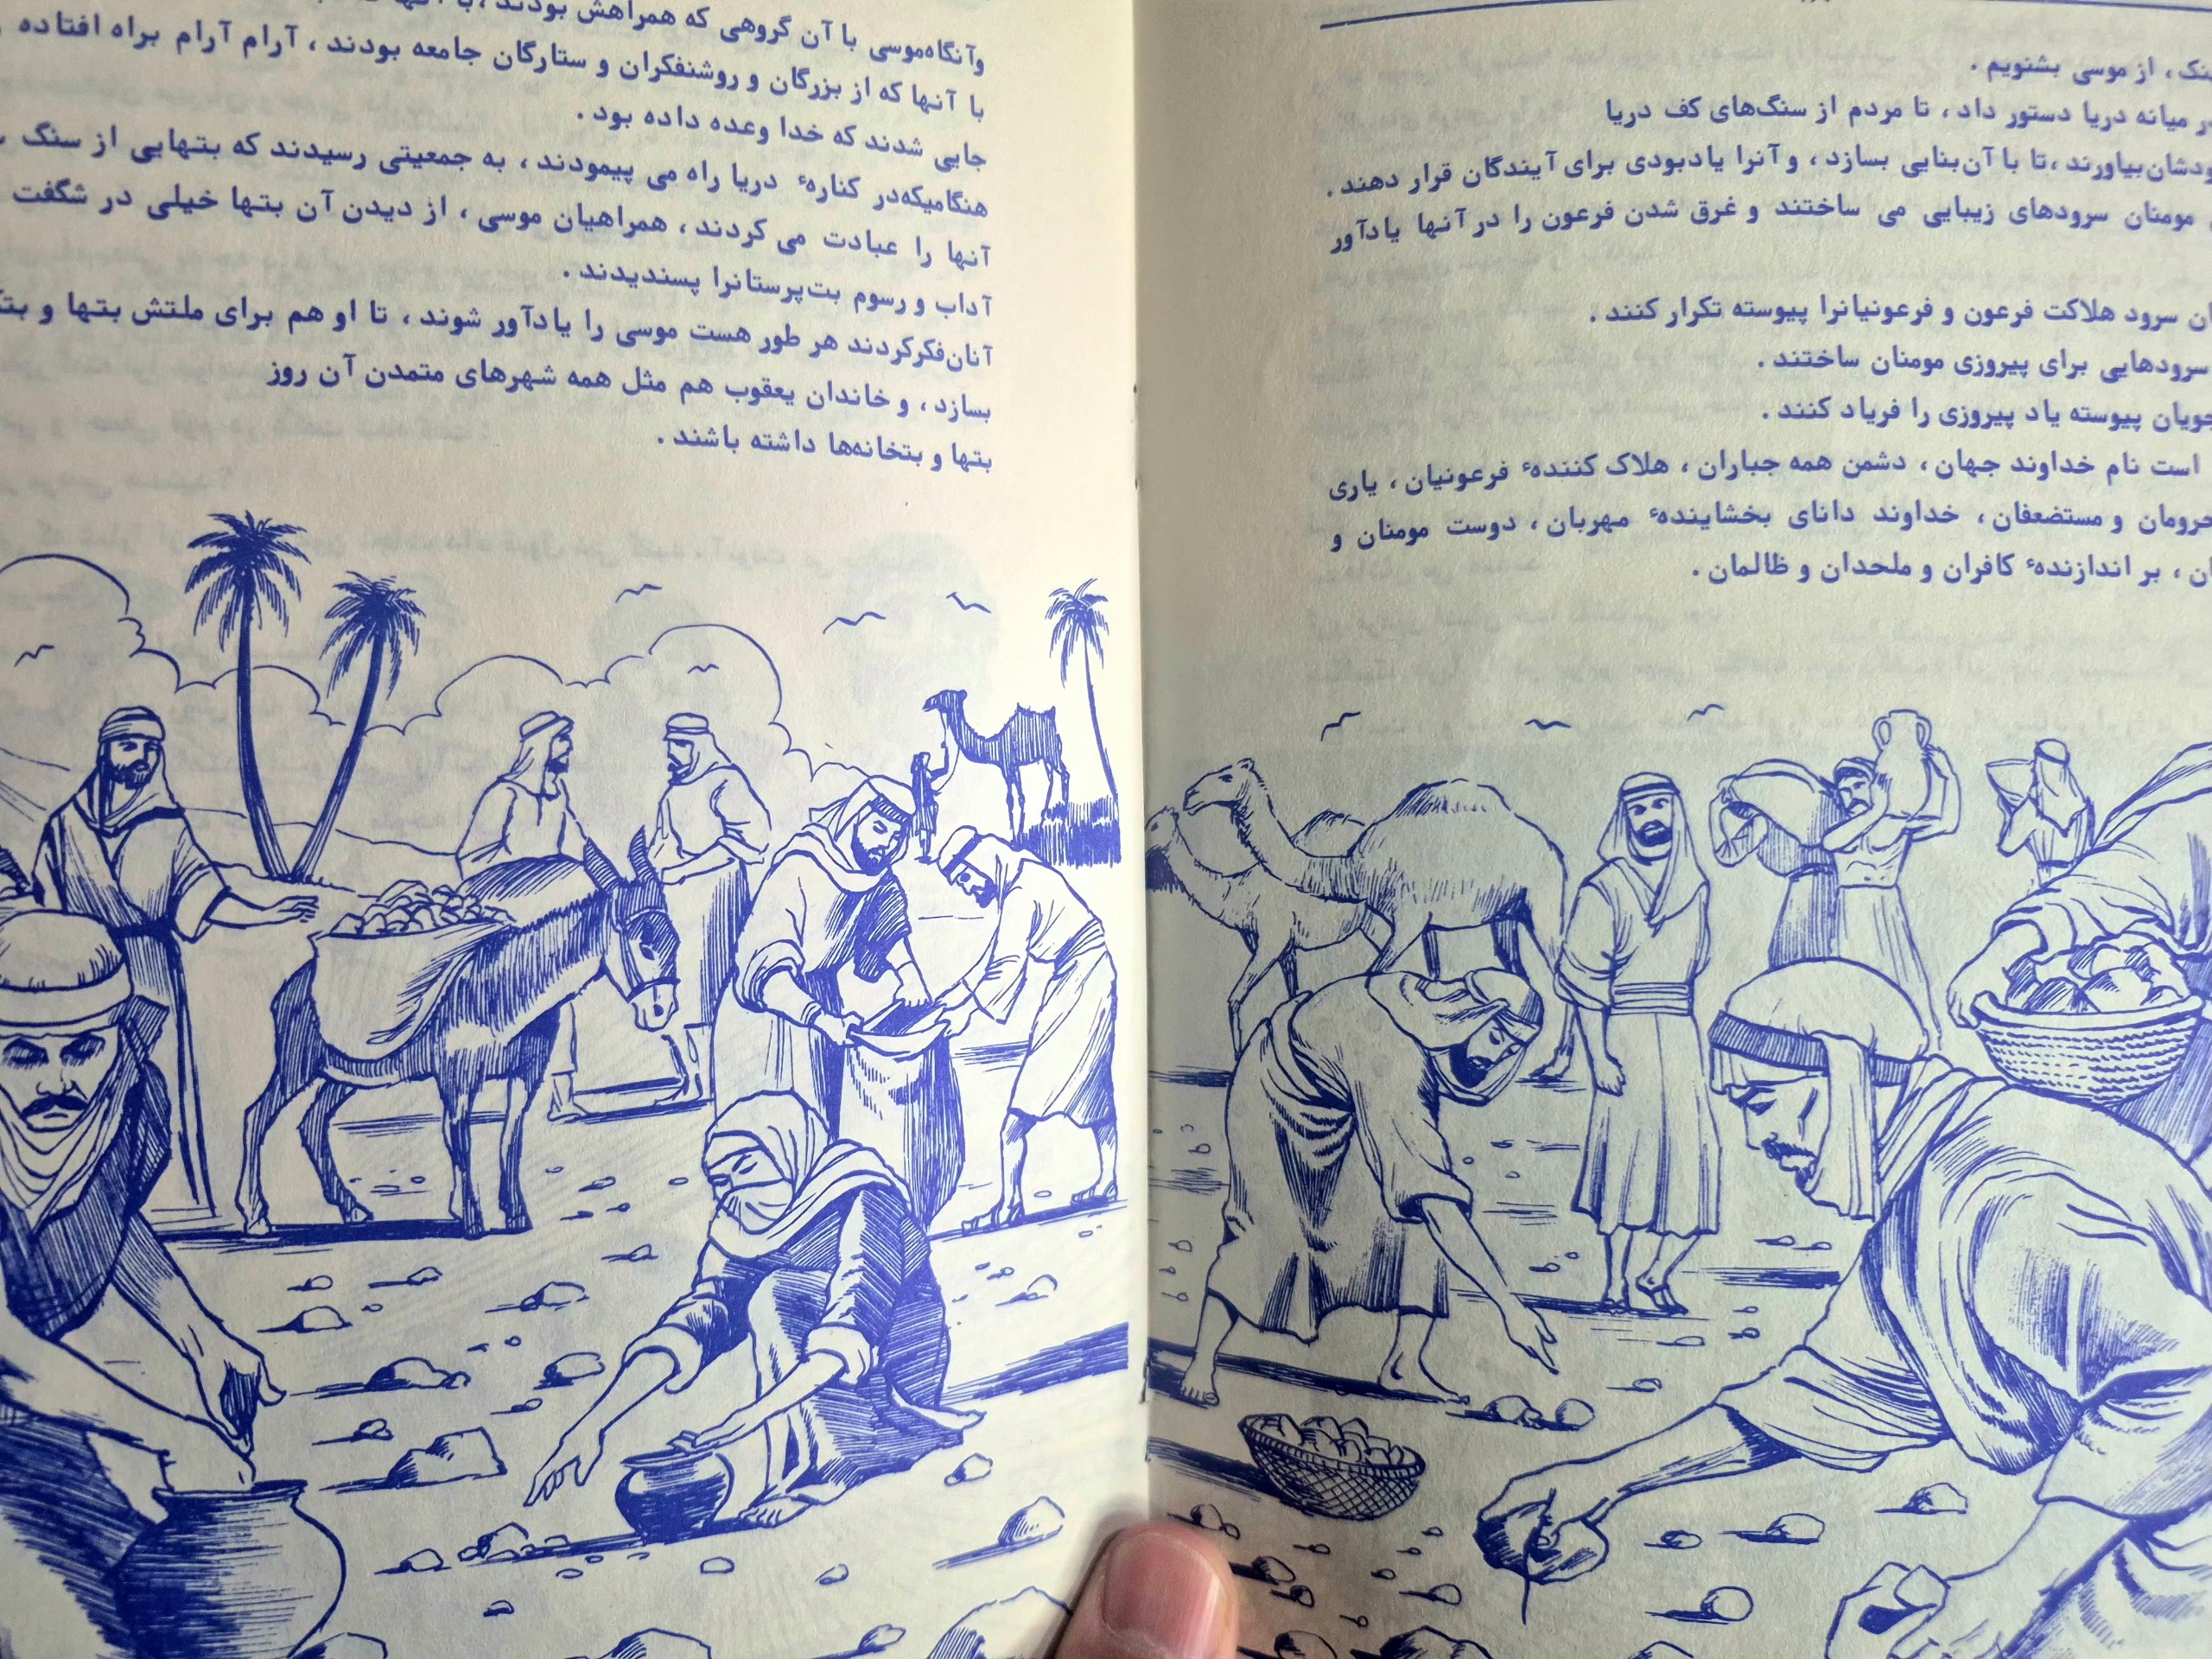 بشنویم .
میانه دریا دستور داد ، تا مردم از سنگ‌های کف دریا
بیاورند ، تا با آن بنایی بسازد ، و آنرا یادبودی برای آیندگان قرار دهند .
مومنان سرودهای زیبایی می ساختند و غرق شدن فرعون را در آنها یادآور
سرود هلاکت فرعون و فرعونیانرا پیوسته تکرار کنند .
سرودهایی برای پیروزی مومنان ساختند .
پیوسته یاد پیروزی را فریاد کنند .
است نام خداوند جهان ، دشمن همه جباران ، هلاک کنندهٔ فرعونیان ، یاری
و مستضعفان ، خداوند دانای بخشایندهٔ مهربان ، دوست مومنان و
، بر اندازندهٔ کافران و ملحدان و ظالمان .
وآنگاه موسی با آن گروهی که همراهش بودند ، با
با آنها که از بزرگان و روشنفکران و ستارگان جامعه بودند ، آرام آرام براه افتاده
جایی شدند که خدا وعده داده بود .
هنگامیکه در کنارهٔ دریا راه می پیمودند ، به جمعیتی رسیدند که بتهایی از سنگ
آنها را عبادت می کردند ، همراهیان موسی ، از دیدن آن بتها خیلی در شگفت
آداب و رسوم بت‌پرستانرا پسندیدند .
آنان فکر کردند هر طور هست موسی را یادآور شوند ، تا او هم برای ملتش بتها و
بسازد ، و خاندان یعقوب هم مثل همه شهرهای متمدن آن روز
بتها و بتخانه‌ها داشته باشند .